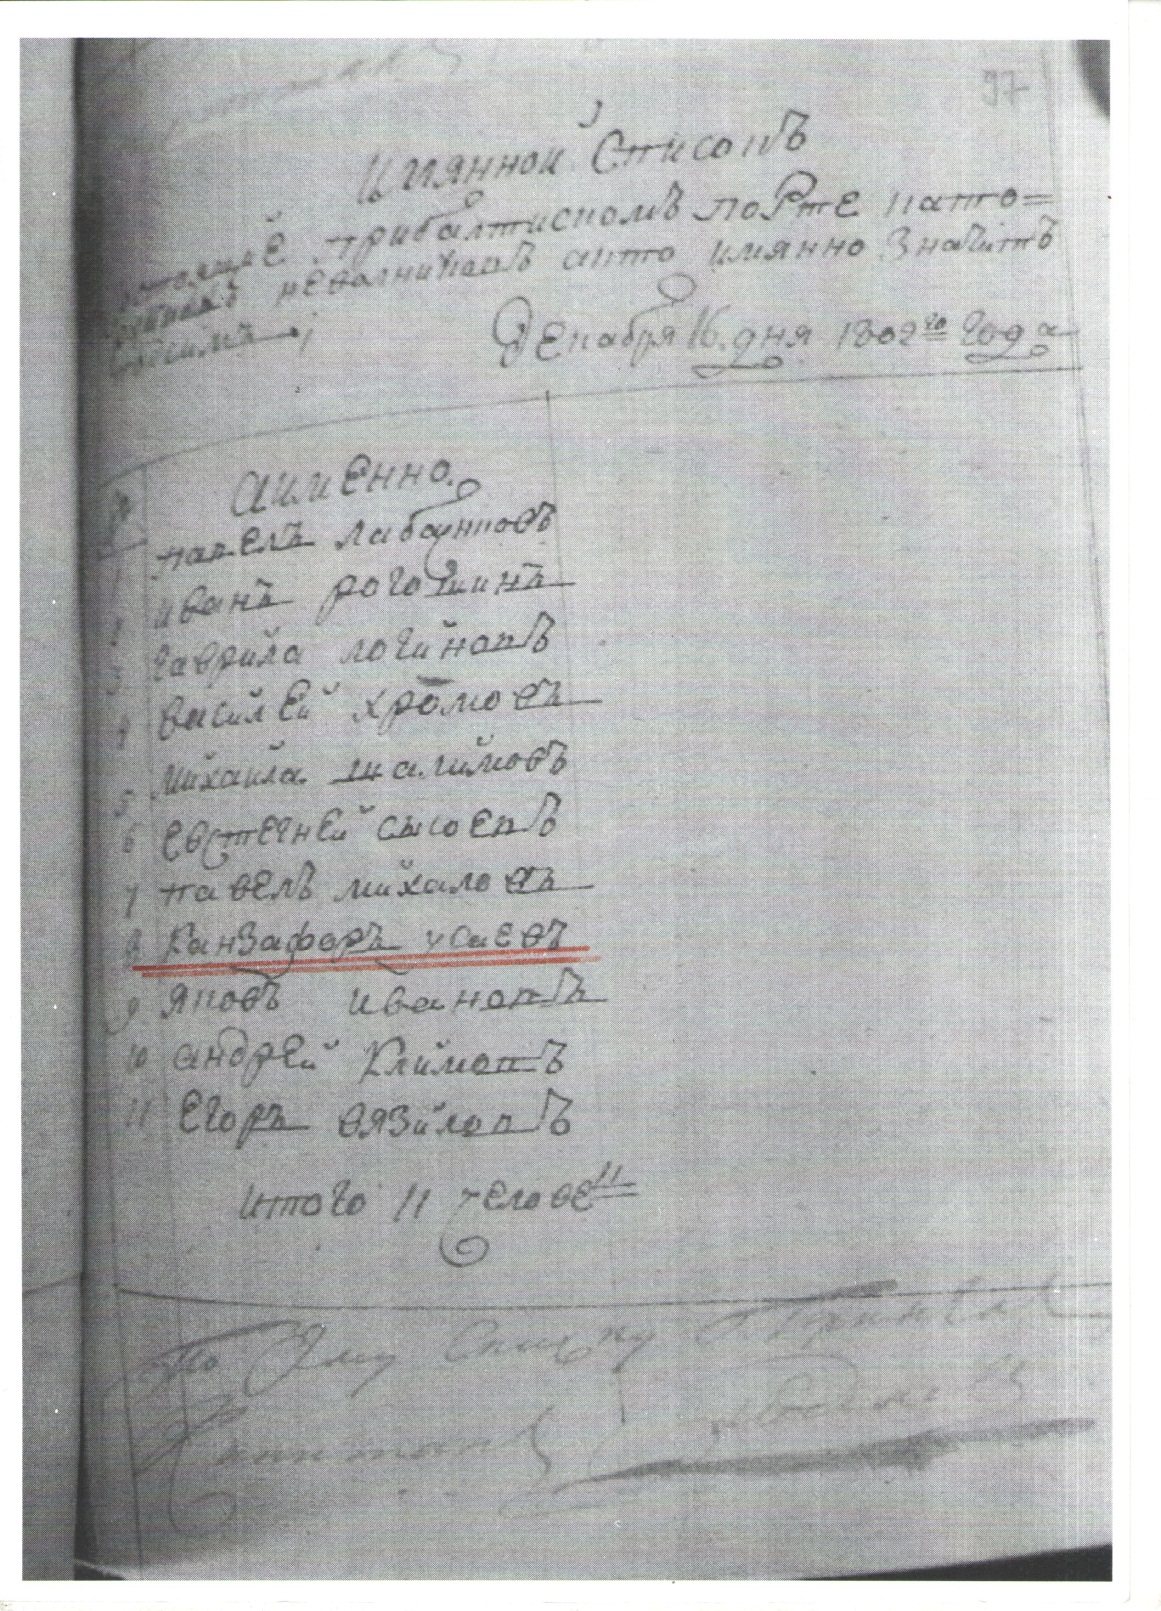 97
Имянной Списокъ
прибалтискомъ порте като=
невольникахъ акто имянно Значитъ
Декабря 16. дня 1802го Года
аименно.
павелъ лабунцовъ
2 иванъ рогошинъ
3 гаврила логиновъ
4 василей хромовъ
5 михаила шалимовъ
6 евстегней сысоевъ
7 павелъ михаловъ
8 Канзафоръ усаевъ
9 яковъ ивановъ
10 андрей Климовъ
11 Егоръ вязиловъ
итого 11 человекъ
По Сему Списку
Капитанъ